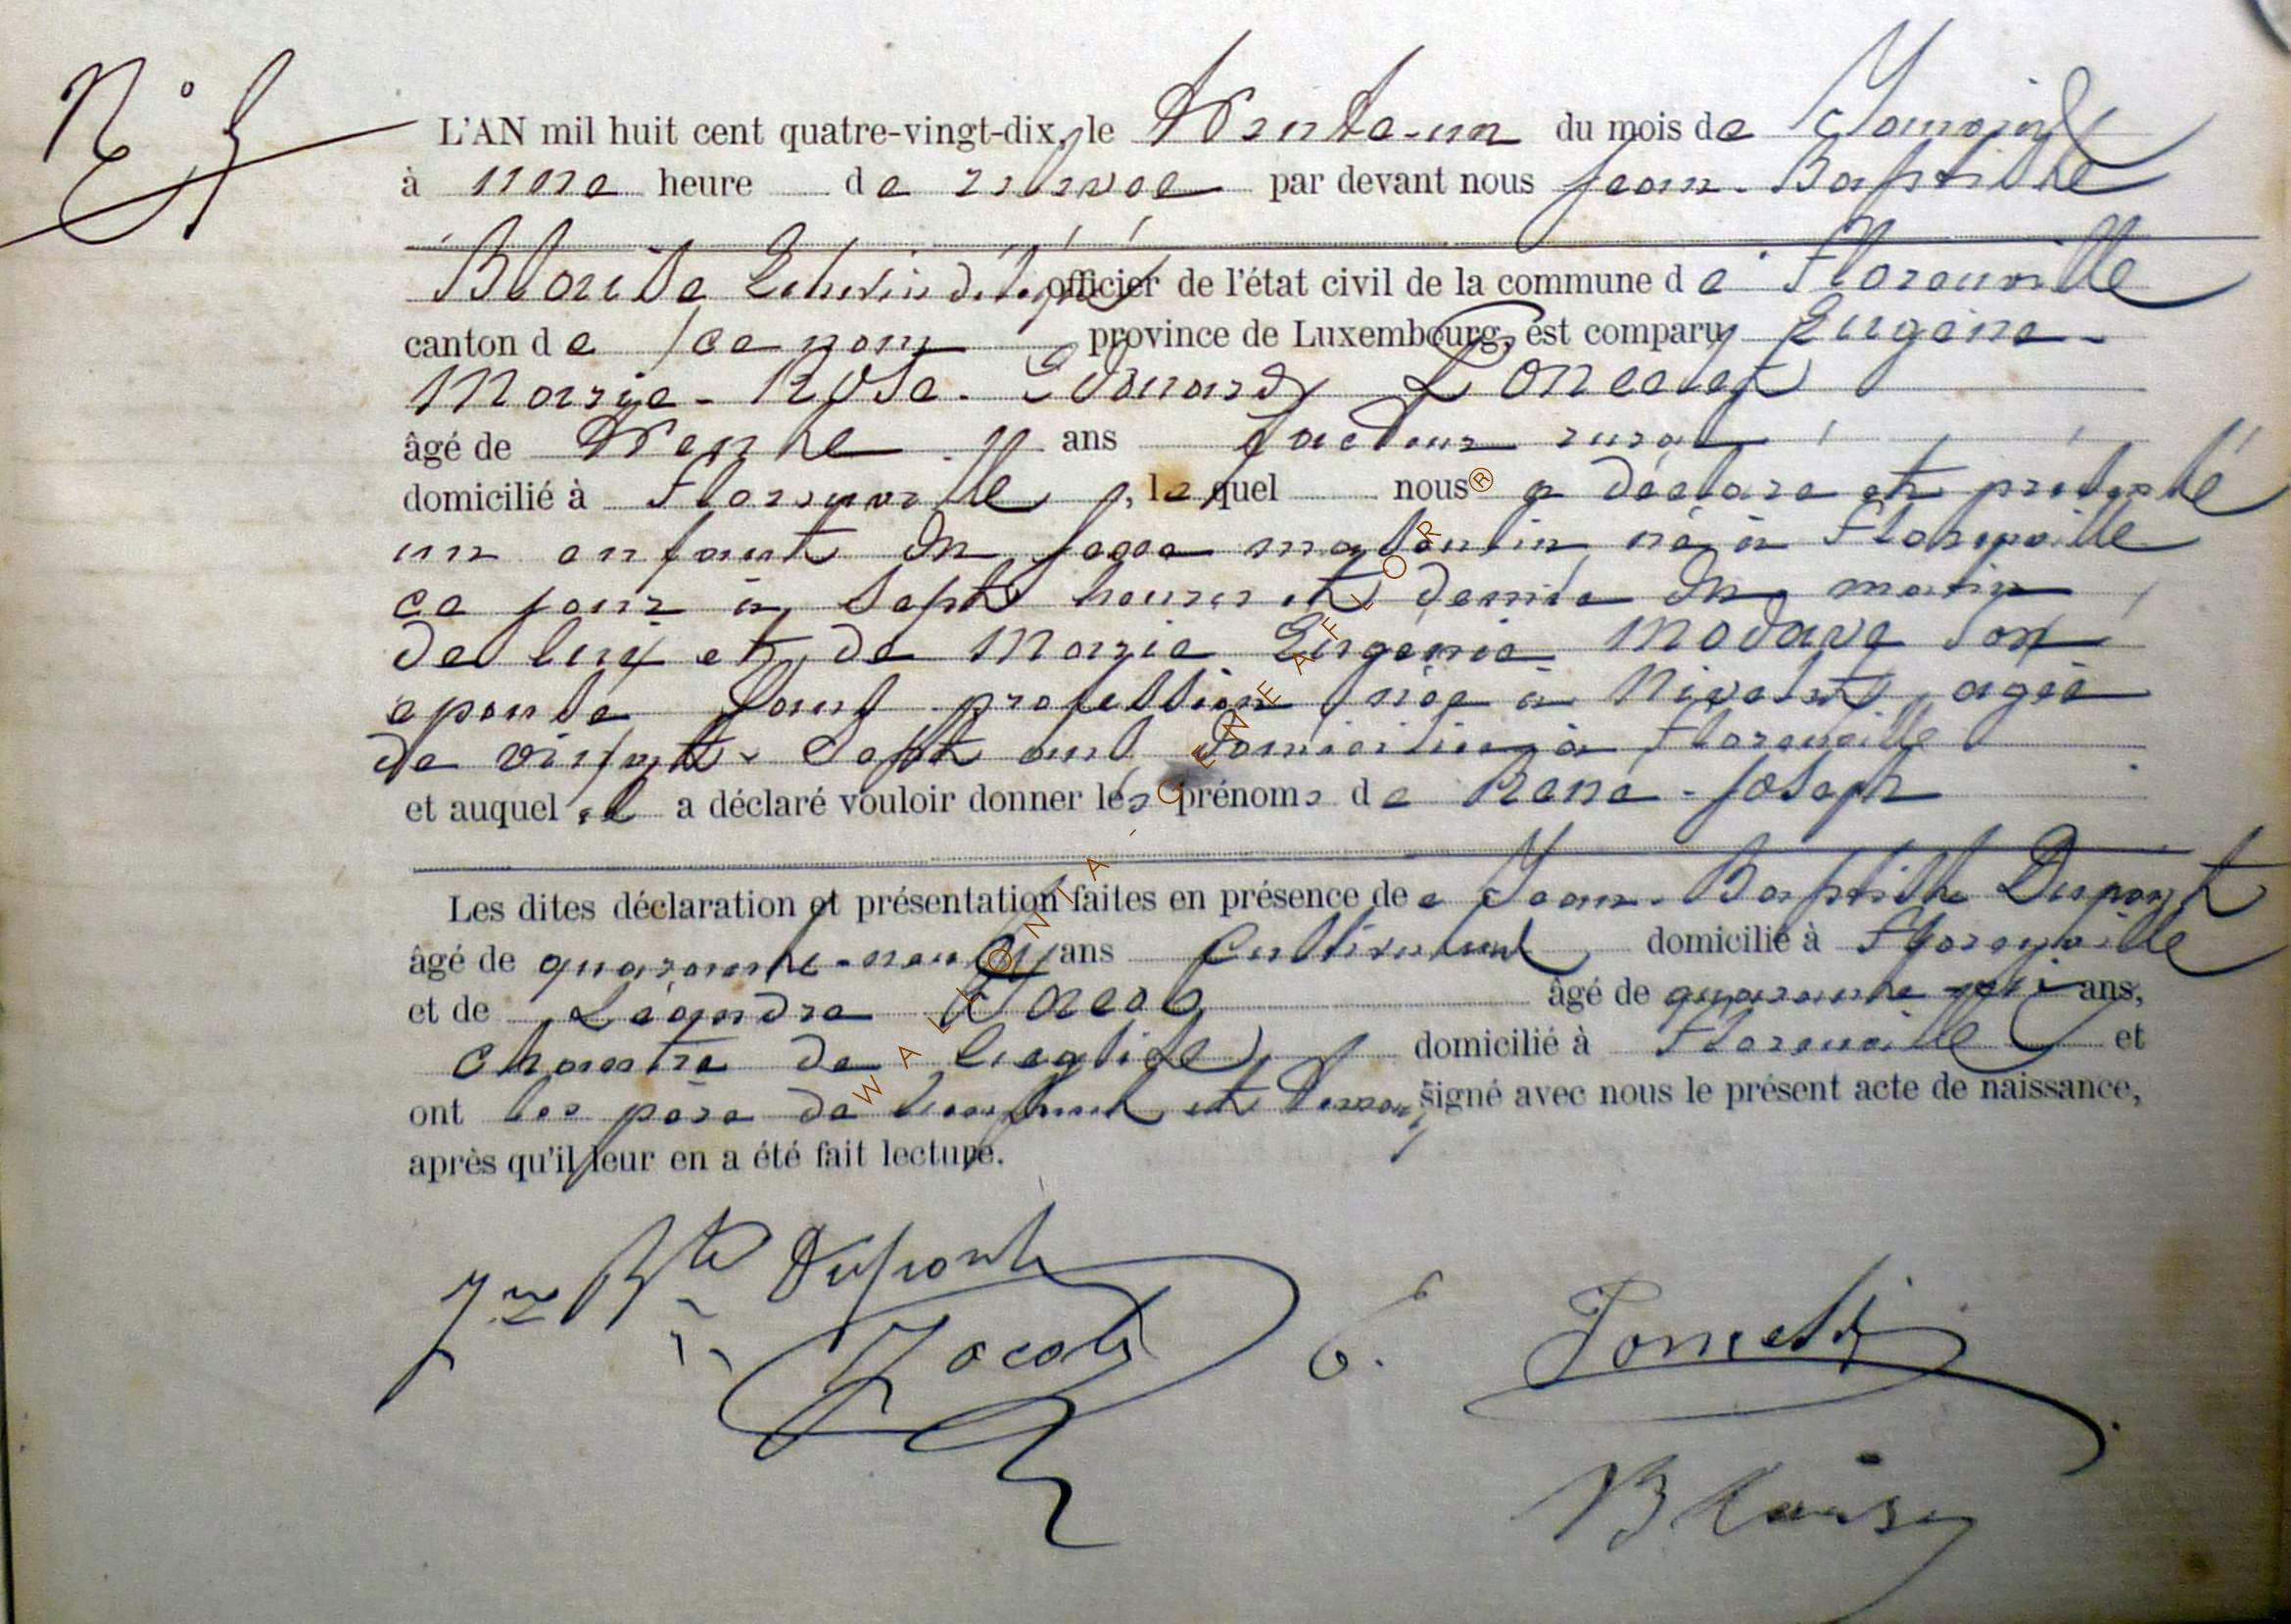 N° 5
L'AN mil huit cent quatre-vingt-dix, le trente-un du mois de Janvier
à une heure de relevée par devant nous Jean-Baptiste
Blaise Echevin délégué officier de l'état civil de la commune de Florenville
canton de ce nom province de Luxembourg, est comparu Eugène-
Marie-Rose-Edouard Poncelet
âgé de trente ans facteur rural
domicilié à Florenville, lequel nous a déclaré et présenté
un enfant du sexe masculin né à Florenville
ce jour à sept heures et demie du matin
de lui et de Marie Eugénie Modave son
epouse sans profession née à agée
de vingt-sept ans domiciliée à Florenville
et auquel il a déclaré vouloir donner les prénoms de René-Joseph
Les dites déclaration et présentation faites en présence de Jean-Baptiste Dupont
âgé de quarante-neuf ans Cultivateur domicilié à Florenville
et de Léandre Jacob âgé de quarante ans,
chantre de l'église domicilié à Florenville et
ont les père de l'enfant et témoins signé avec nous le présent acte de naissance,
après qu'il leur en a été fait lecture.
Jn Bte Dupont
Jacob
E. Poncelet
Blaise
WALLONIA - GENEAFLOR®